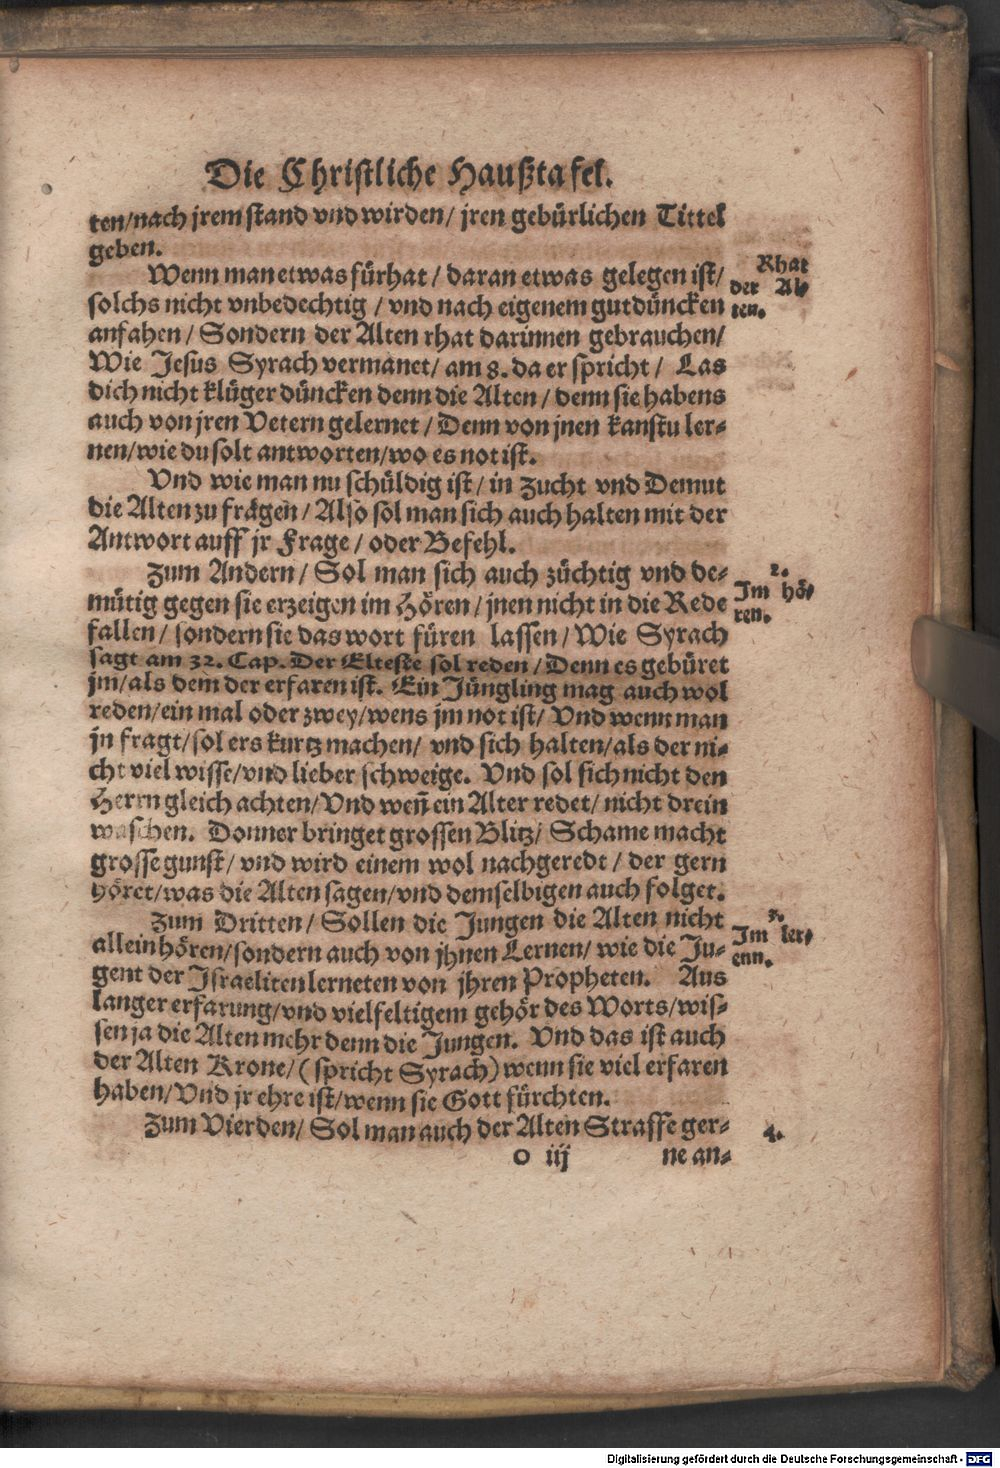 Die Christliche Haußtafel.
ten/nach jrem stand vnd wirden/ jren gebürlichen Tittel
geben.
Wenn man etwas fürhat/ daran etwas gelegen ist/
Rhat
der Al-
ten.
solchs nicht vnbedechtig/ vnd nach eigenem gutdüncken
anfahen/ Sondern der Alten rhat darinnen gebrauchen/
Wie Jesus Syrach vermanet/ am 8. da er spricht/ Las
dich nicht klüger düncken denn die Alten/ denn sie habens
auch von jren Vetern gelernet/ Denn von jnen kanstu ler-
nen/wie du solt antworten/wo es not ist.
Vnd wie man nu schüldig ist/ in Zucht vnd Demut
die Alten zu fragen/ Also sol man sich auch halten mit der
Antwort auff jr Frage/ oder Befehl.
Zum Andern/ Sol man sich auch züchtig vnd de-
2.
Im hö-
ren.
mütig gegen sie erzeigen im Hören/ jnen nicht in die Rede
fallen/ sondern sie das wort füren lassen/ Wie Syrach
sagt am 32. Cap. Der Elteste sol reden/ Denn es gebüret
jm/als dem der erfaren ist. Ein Jüngling mag auch wol
reden/ein mal oder zwey/wens jm not ist/ Vnd wenn man
jn fragt/sol ers kurtz machen/ vnd sich halten/als der ni-
cht viel wisse/vnd lieber schweige. Vnd sol sich nicht den
Herrn gleich achten/Vnd weñ ein Alter redet/ nicht drein
waschen. Donner bringet grossen Blitz/ Schame macht
grosse gunst/ vnd wird einem wol nachgeredt/ der gern
höret/was die Alten sagen/vnd demselbigen auch folget.
Zum Dritten/ Sollen die Jungen die Alten nicht
3.
Im ler-
enn.
allein hören/sondern auch von jhnen Lernen/ wie die Ju-
gent der Israeliten lerneten von jhren Propheten. Aus
langer erfarung/vnd vielfeltigem gehör des Worts/wis-
sen ja die Alten mehr denn die Jungen. Vnd das ist auch
der Alten Krone/(spricht Syrach) wenn sie viel erfaren
haben/Vnd jr ehre ist/wenn sie Gott fürchten.
Zum Vierden/ Sol man auch der Alten Straffe ger-
4.
O iij ne an-
Digitalisierung gefördert durch die Deutsche Forschungsgemeinschaft - DFG